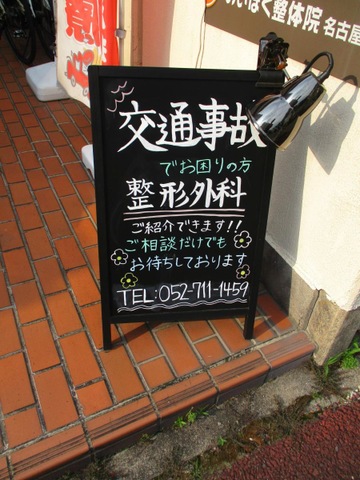 整体院 名古屋
療
交通事故
でお困りの方
整形外科
ご紹介できます!!
ご相談だけでも
お待ちしております
TEL:052-711-1459